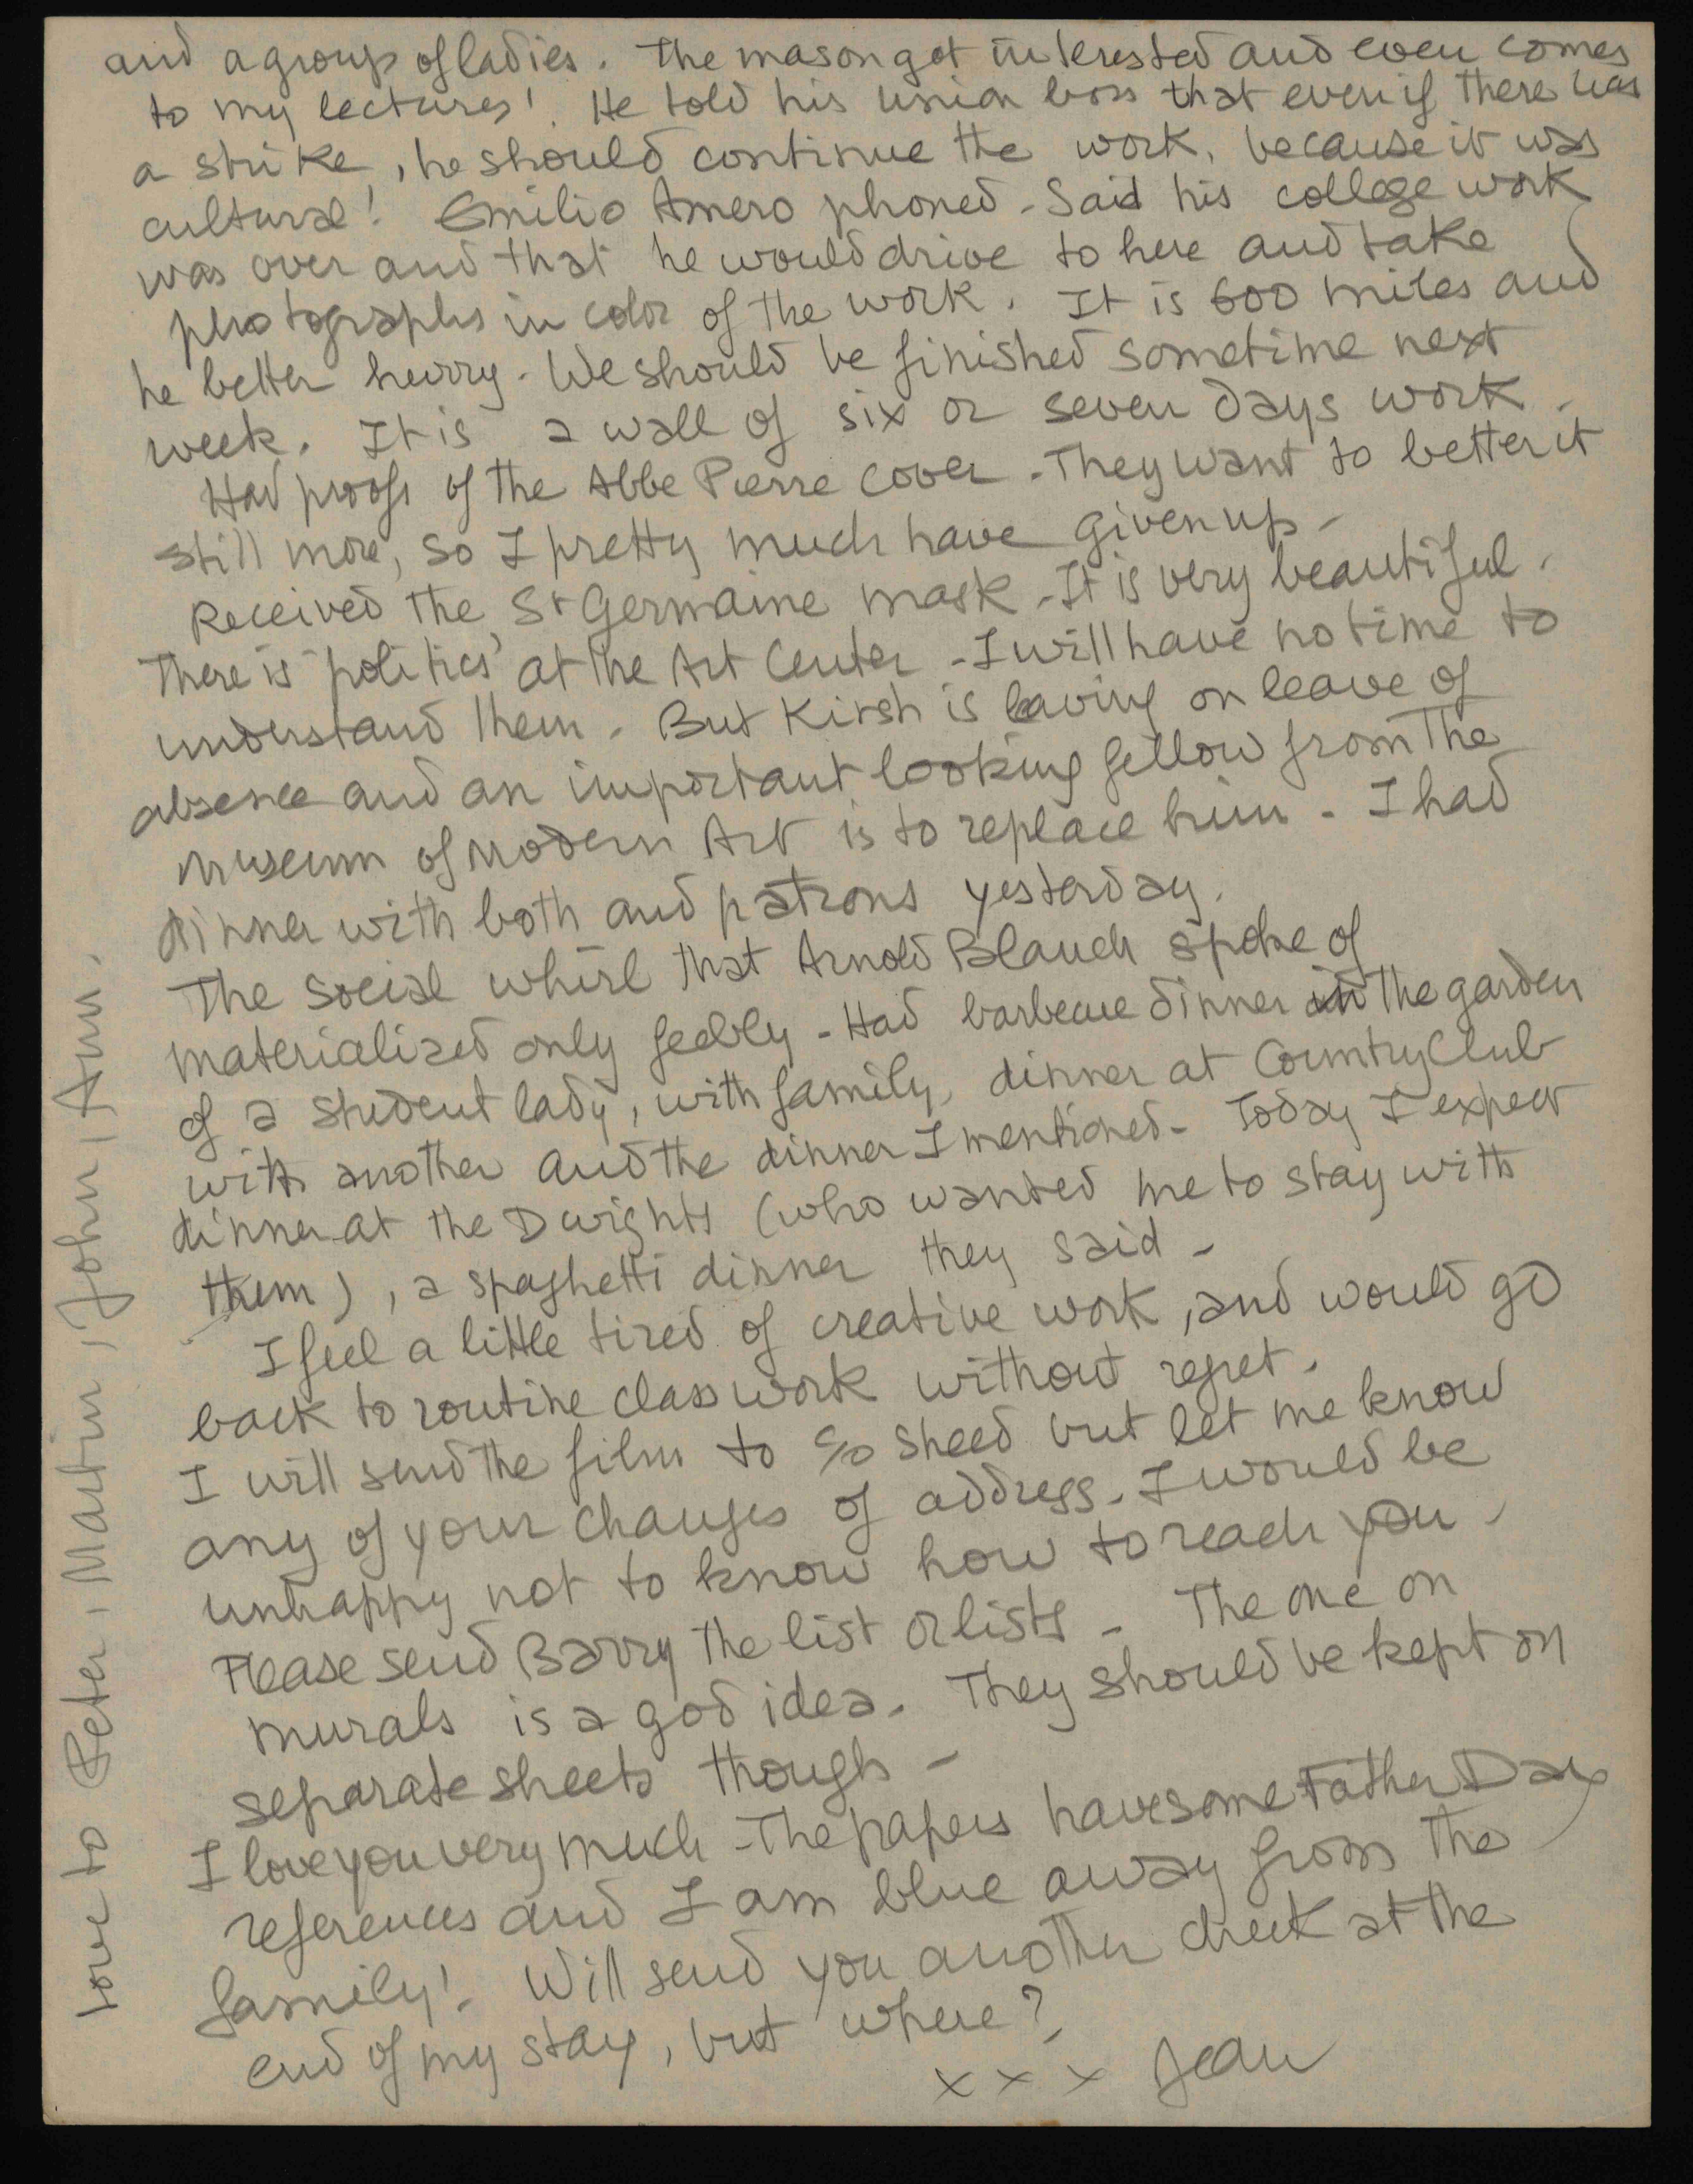 and a group of ladies. The mason got interested and even comes
to my lectures! He told his union boss that even if there was
a strike, he should continue the work, because it was
cultural! Emilio Amero phoned. Said his college work
was over and that he would drive to here and take
photographs in color of the work. It is 600 miles and
he better hurry. We should be finished sometime next
week. It is a wall of six or seven days work.
Had proofs of the Abbe Pierre cover. They want to better it
still more, so I pretty much have given up.
Received the St Germaine mask. It is very beautiful.
There is "politics" at the Art Center. I will have no time to
understand them. But Kirsh is leaving on leave of
absence and an important looking fellow from the
Museum of Modern Art is to replace him. I had
dinner with both and patrons yesterday.
The social whirl that Arnold Blanch spoke of
materialized only feebly. Had barbecue dinner in the garden
of a student lady, with family, dinner at Country Club
with another and the dinner I mentioned. Today I expect
dinner at the Dwights (who wanted me to stay with
them), a spaghetti dinner they said.
I feel a little tired of creative work, and would go
back to routine class work without regret.
I will send the film to c/o Sheed but let me know
any of your changes of address. I would be
unhappy not to know how to reach you.
Please send Barry the list or lists. The one on
murals is a god idea. They should be kept on
separate sheets though.
I love you very much. The papers have some Father Day
references and I am blue away from the
family! Will send you another check at the
end of my stay, but where?
x x x Jean
love to Peter, Martin, John, Ann.